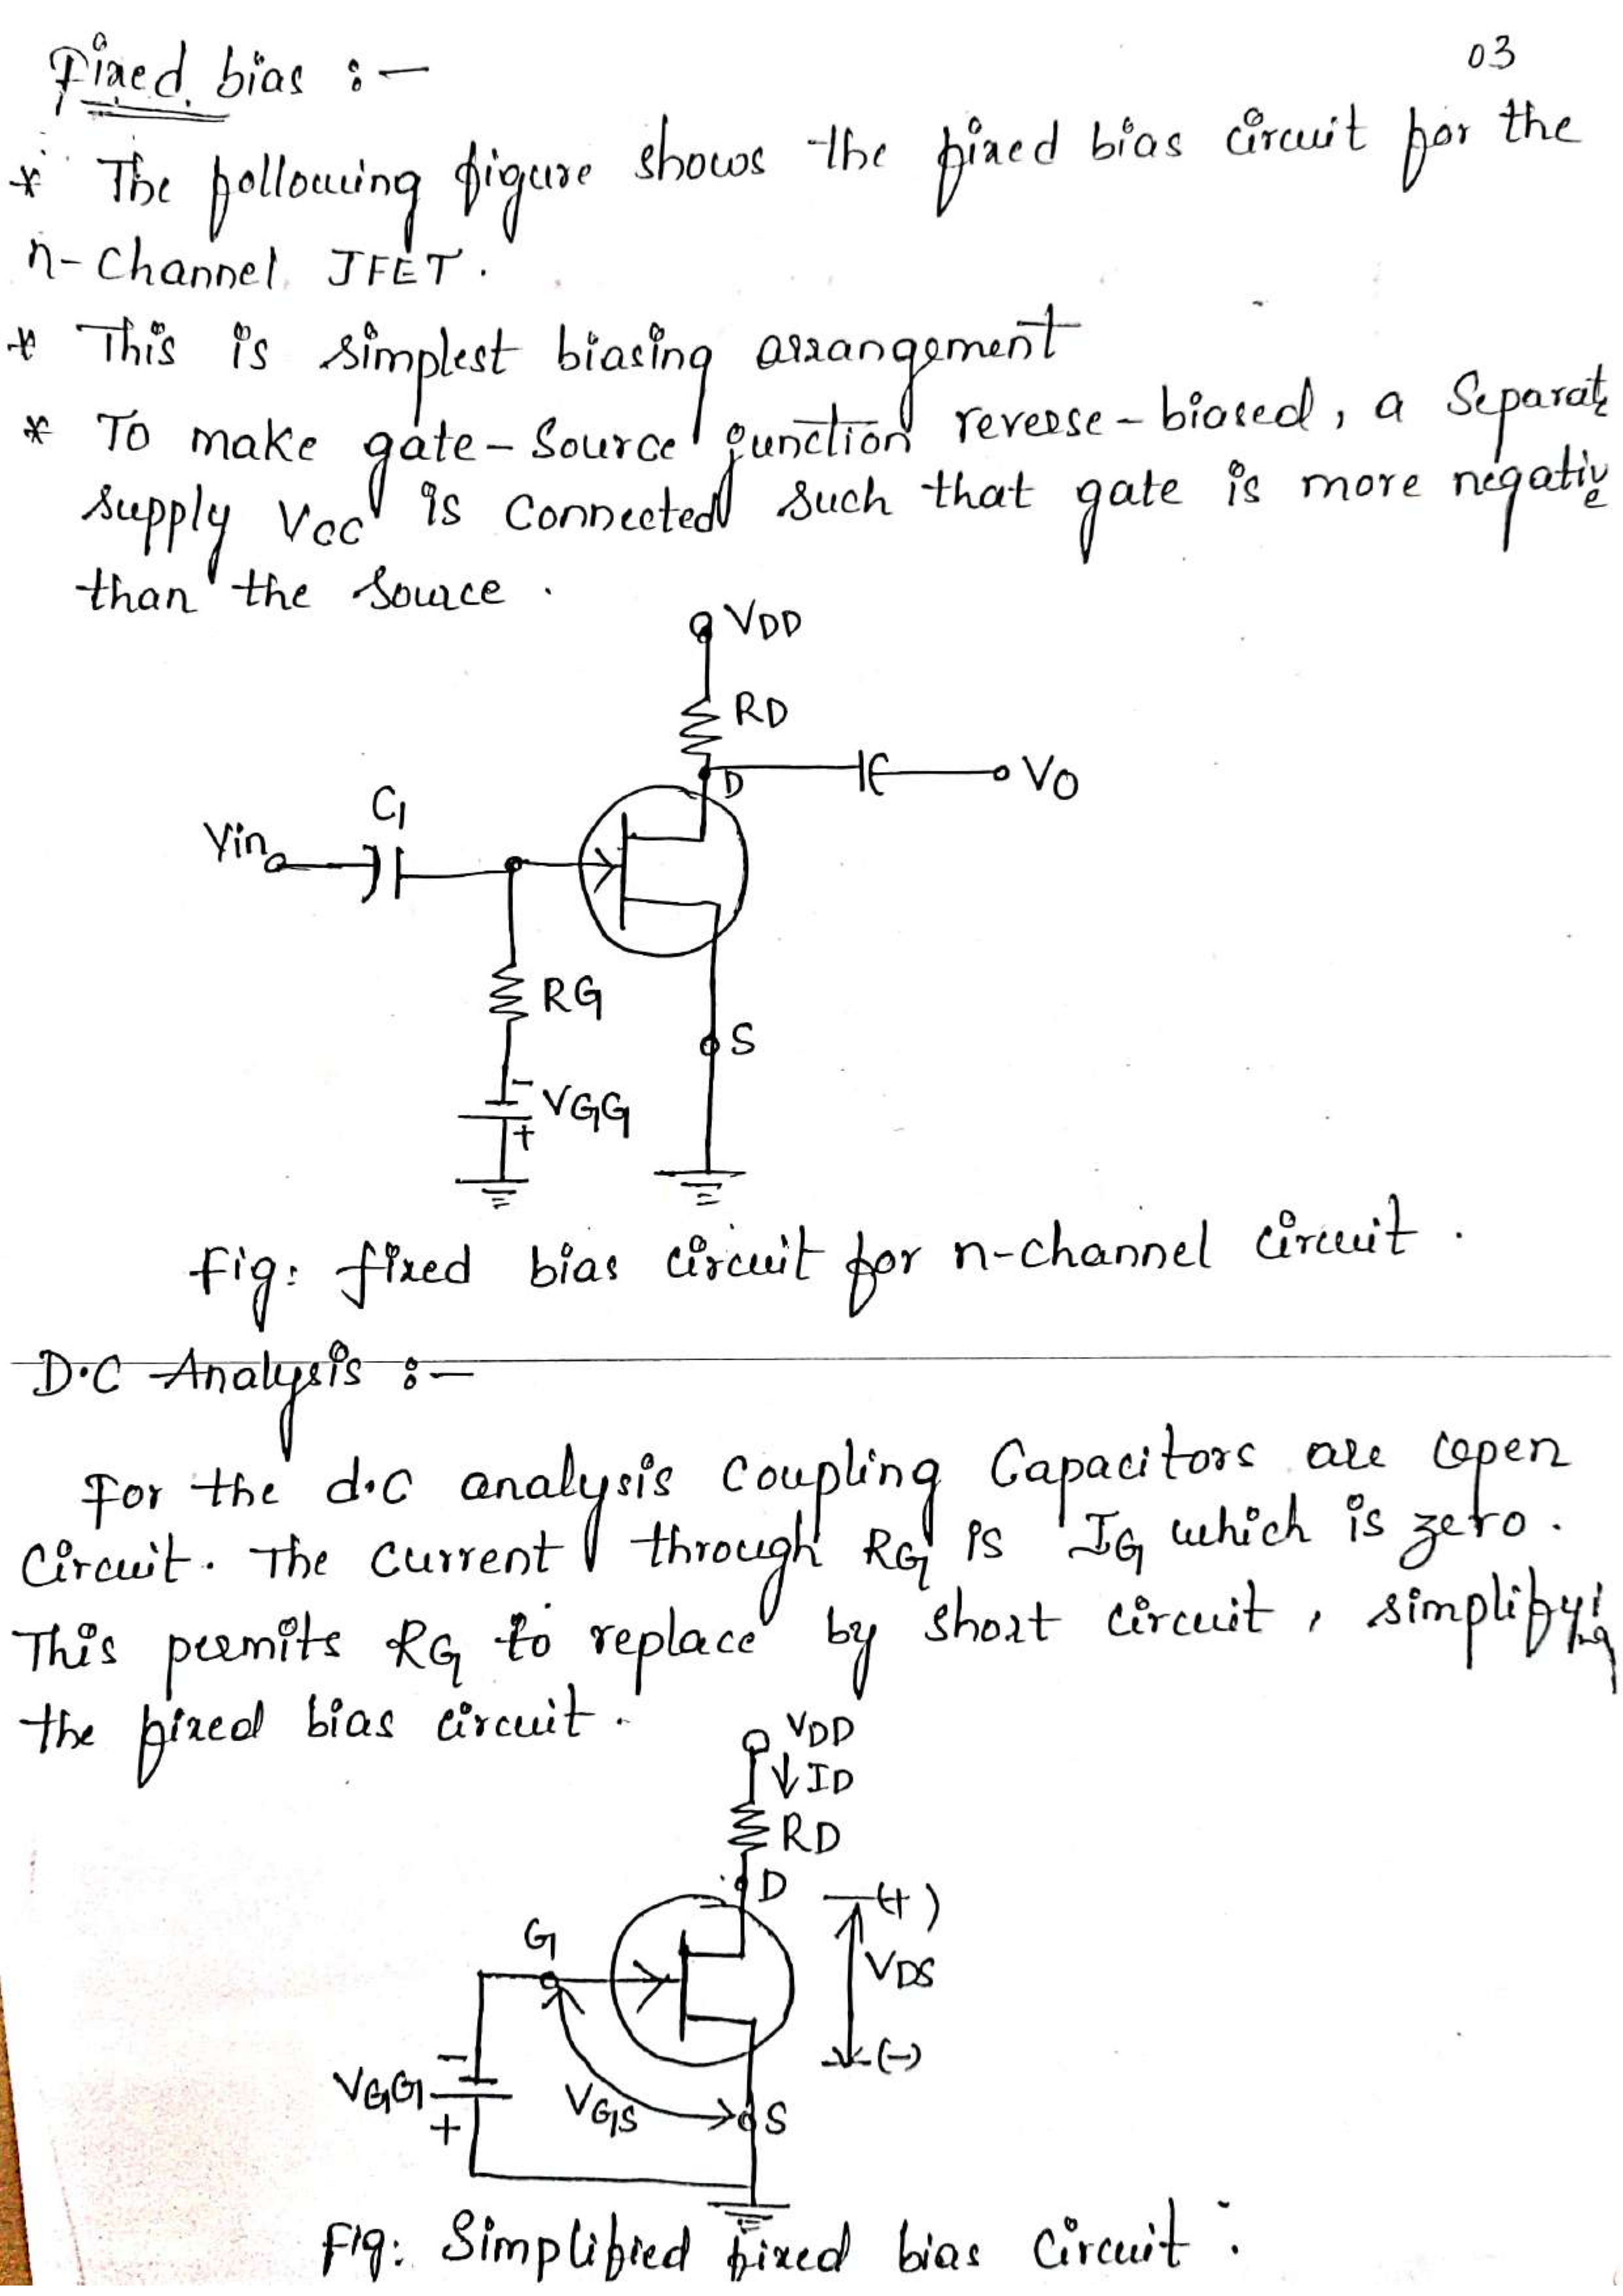 03
Fixed bias :-
* The following figure shows the fixed bias circuit for the
n-channel JFET.
* This is simplest biasing arrangement
* To make gate-source junction reverse-biased, a separate
supply VGG is connected such that gate is more negative
than the source.
VDD
RD
D
VO
C1
Vin
RG
S
-
VGG
+
Fig: fixed bias circuit for n-channel circuit.
D.C Analysis :-
For the d.c analysis coupling capacitors are open
circuit. The current through RG is IG which is zero.
This permits RG to replace by short circuit, simplifying
the fixed bias circuit.
VDD
ID
RD
D
(+)
G
VDS
(-)
-
VGG
VGS
S
+
Fig: Simplified fixed bias circuit.